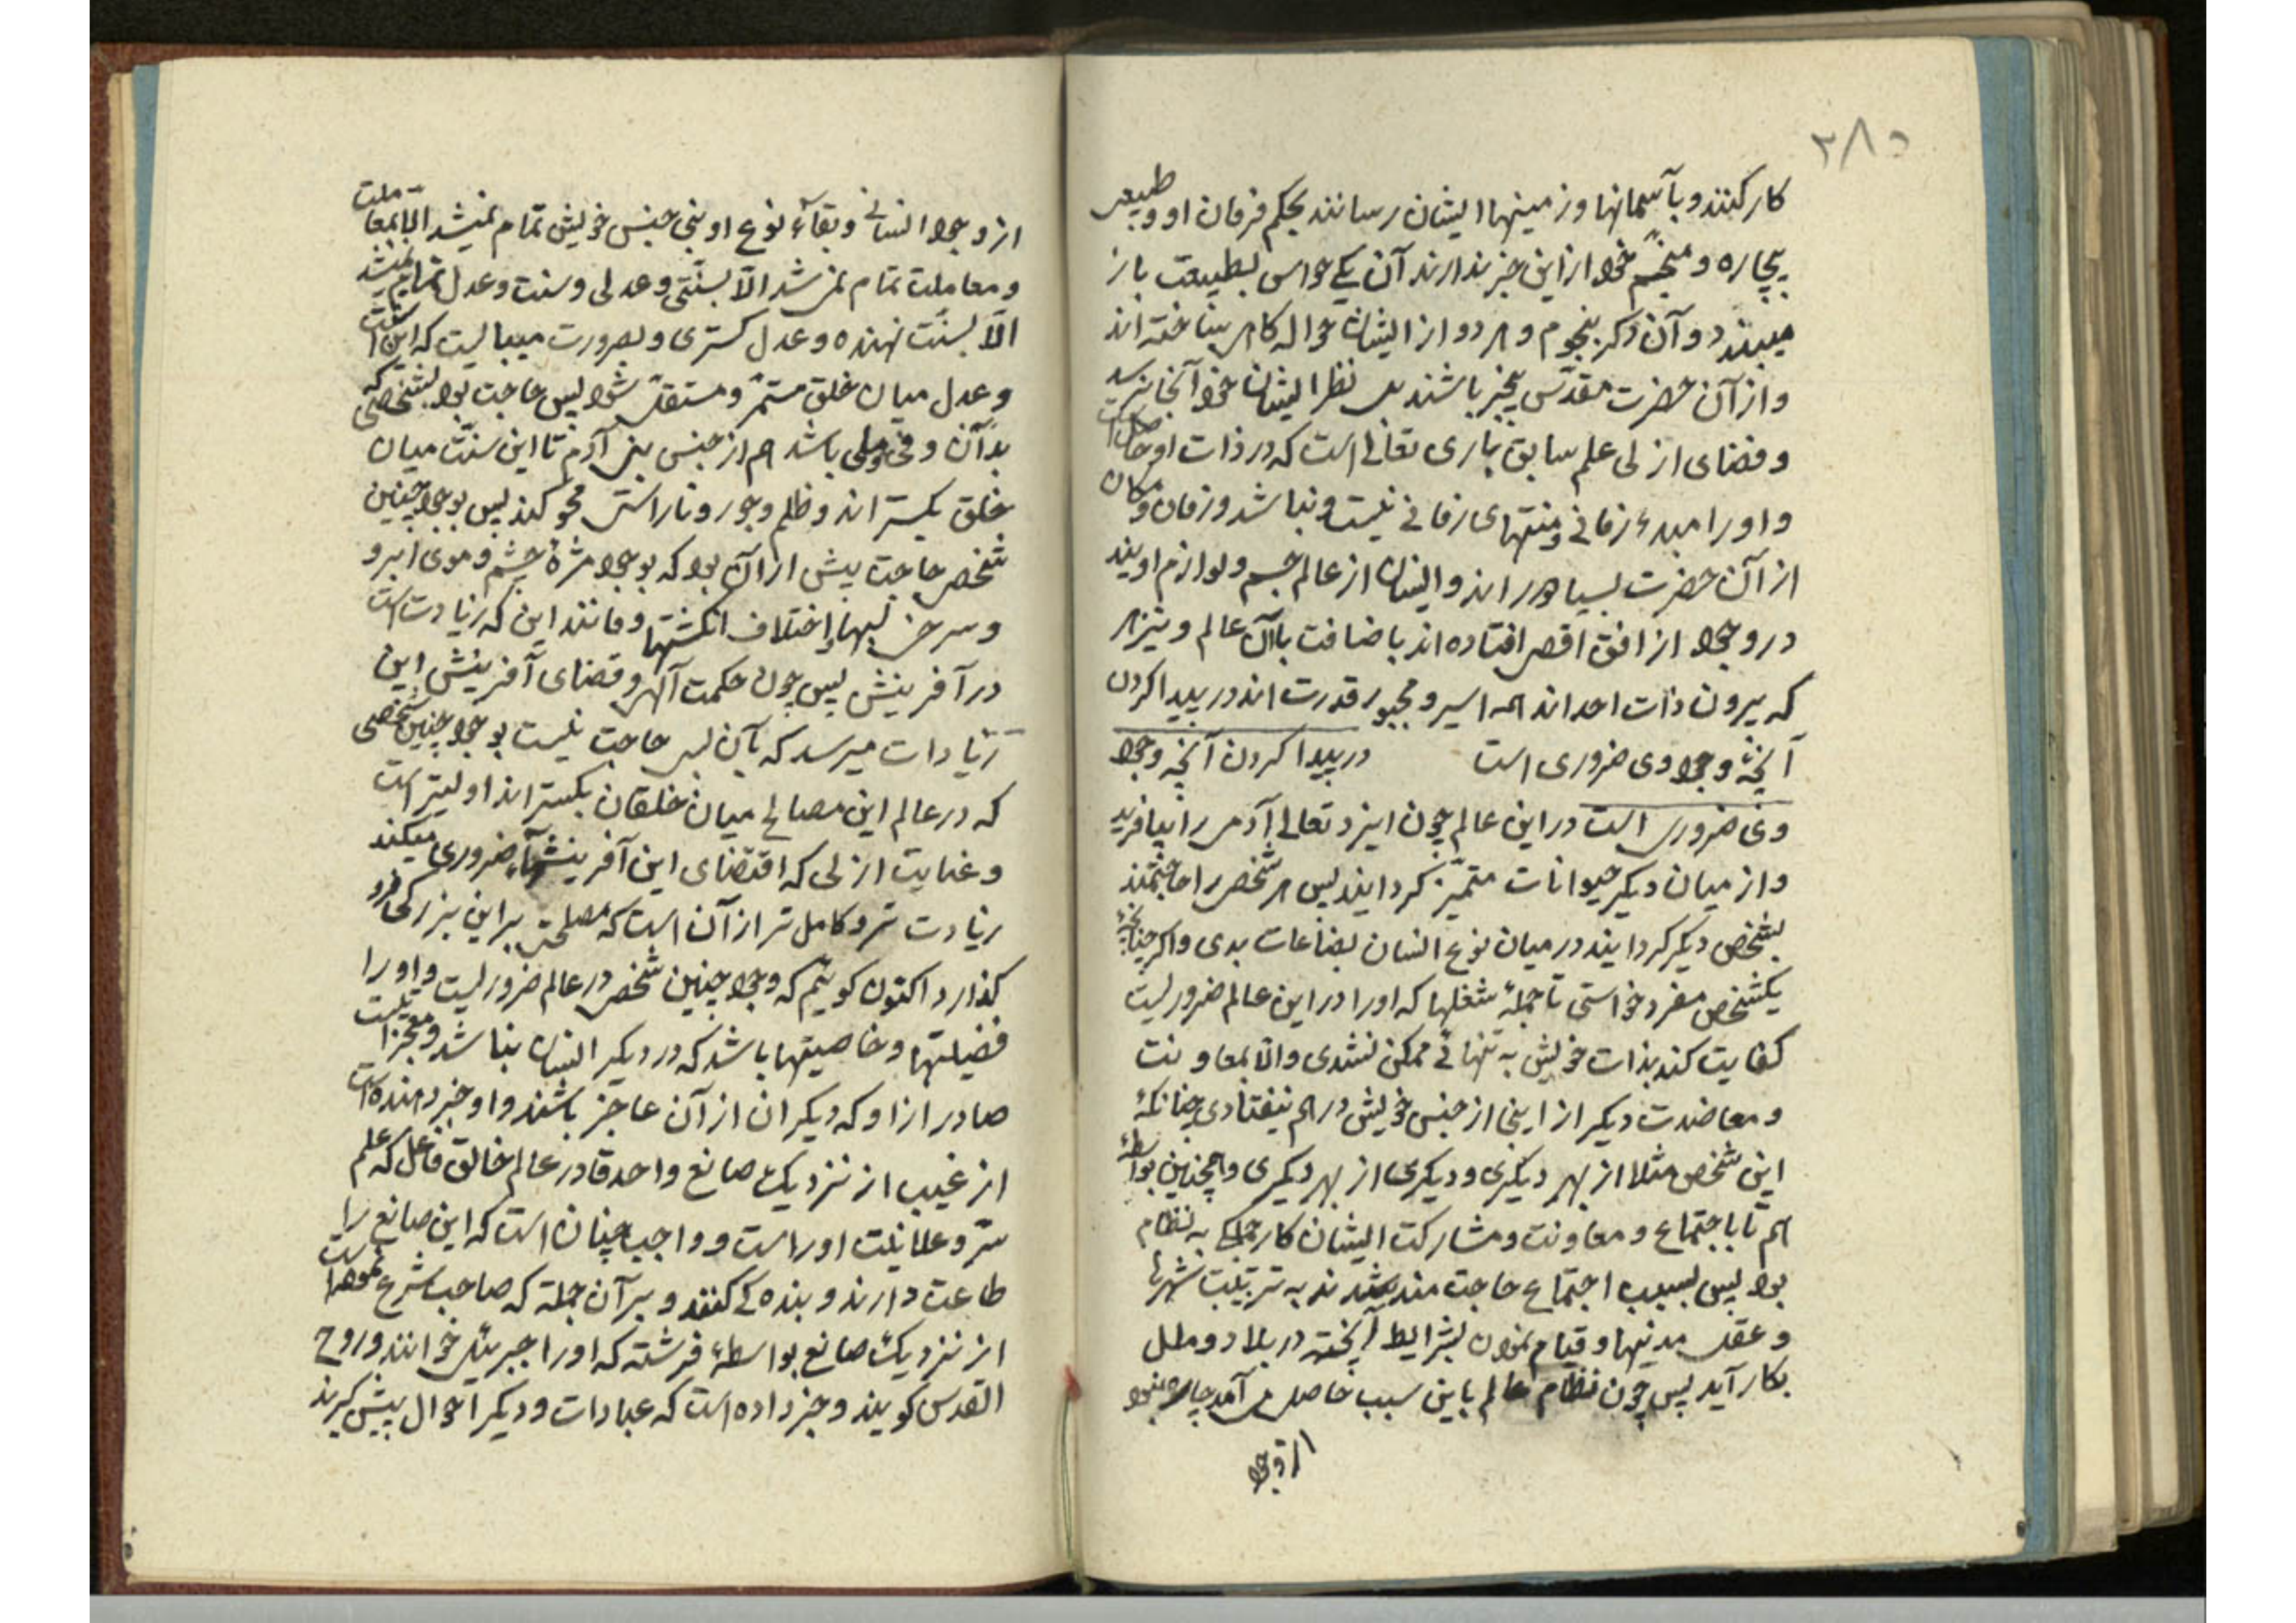 ۲۸۵
کار کنند و بآسمانها و زمینها ایشان رسانند بحکم فرمان او و طبیعی
بیچاره و منجم خود از این خبر ندارند آن یکی حواس بطبیعت باز
میبندد و آن دکر بنجوم و هر دو از ایشان حواله کاهی بساخته اند
و از آن حضرت مقدس بیخبر باشند بلی نظر ایشان خود آنجا نرسد
و قضای ازلی علم سابق باری تعالی است که در ذات او حاصل است
و او را مبدء زمانی و منتهای زمانی نیست و نباشد و زمان و مکان
از آن حضرت بسیار دور اند و ایشان از عالم جسم و لوازم اویند
در وجود از افق اقصی افتاده اند باضافت باآن عالم و نیز هر
که بیرون ذات احد اند همه اسیر و مجبور قدرت اند در پیدا کردن
آنچه وجود وی ضروری است در پیدا کردن آنچه وجود
وی ضروری است در این عالم چون ایزد تعالی آدمی را بیافرید
و از میان دیکر حیوانات متمیز کردانید پس هر شخص را حاجتمند
بشخص دیکر کردانید در میان نوع انسان بضاعات بدی و اکر چنانچه
یکشخص مفرد خواستی تا جملهٔ شغلها که او را در این عالم ضروریست
کفایت کند بذات خویش به تنهائی ممکن نشدی و الا بمعاونت
و معاضدت دیکر از ابنا از جنس خویش در هم نیفتادی چنانکه
این شخص مثلا از بهر دیکری و دیکری از بهر دیکری و همچنین بواسطهٔ
هم تا باجتماع و معاونت و مشارکت ایشان کار جملکی به نظام
بود پس بسبب اجتماع حاجت مند شدند به ترتیب شهرها
و عقد مدنیها و قیام نمودن بشرایط آنچه در بلاد و ملل
بکار آید پس چون نظام عالم باین سبب حاصل می آمد چاره نبود
از وجود
از وجود انسانی و بقاء نوع او بنی جنس خویش تمام نمیشد الا بمعاملت
و معاملت تمام نمی شد الا بسنتی و عدلی و سنت و عدل تمام نمیشد
الا بسنت نهنده و عدل کستری و بضرورت میبایست که این سنت
و عدل میان خلق مستمر و مستقل شود پس حاجت بود بشخصی که
بدآن وفی و ملی باشد هم از جنس بنی آدم تا این سنت میان
خلق بکستراند و ظلم و جور و ناراستی محو کند پس بوجود چنین
شخص حاجت بیش از آن بود که بوجود مژهٔ چشم و موی ابرو
و سرخی لبها و اختلاف انکشتها و مانند این که زیادت است
در آفرینش پس چون حکمت آلهی و قضای آفرینش این
زیادات میرسد که بآن بس حاجت نیست بوجود چنین شخصی
که در عالم این مصالح میان خلقان بکستراند اولیتر است
و عنایت ازلی که اقتضای این آفرینشها ضروری میکند
زیادت تر و کامل تر از آن است که مصلحتی براین بزرکی فرو
کذارد اکنون کوئیم که وجود چنین شخص در عالم ضروریست و او را
فضیلتها و خاصیتها باشد که در دیکر انسان نباشد و معجزات نیست
صادر از او که دیکران از آن عاجز باشند و او خبر دهنده است
از غیب از نزدیک صانع واحد قادر عالم خالق فاعل که علم
سر و علانیت او راست و واجب چنان است که این صانع را
طاعت دارند و بنده کی کنند و بر آن جمله که صاحب شرع نموده است
از نزدیک صانع بواسطهٔ فرشته که او را جبرئیل خوانند و روح
القدس کویند و خبر داده است که عبادات و دیکر احوال پیش کیرند